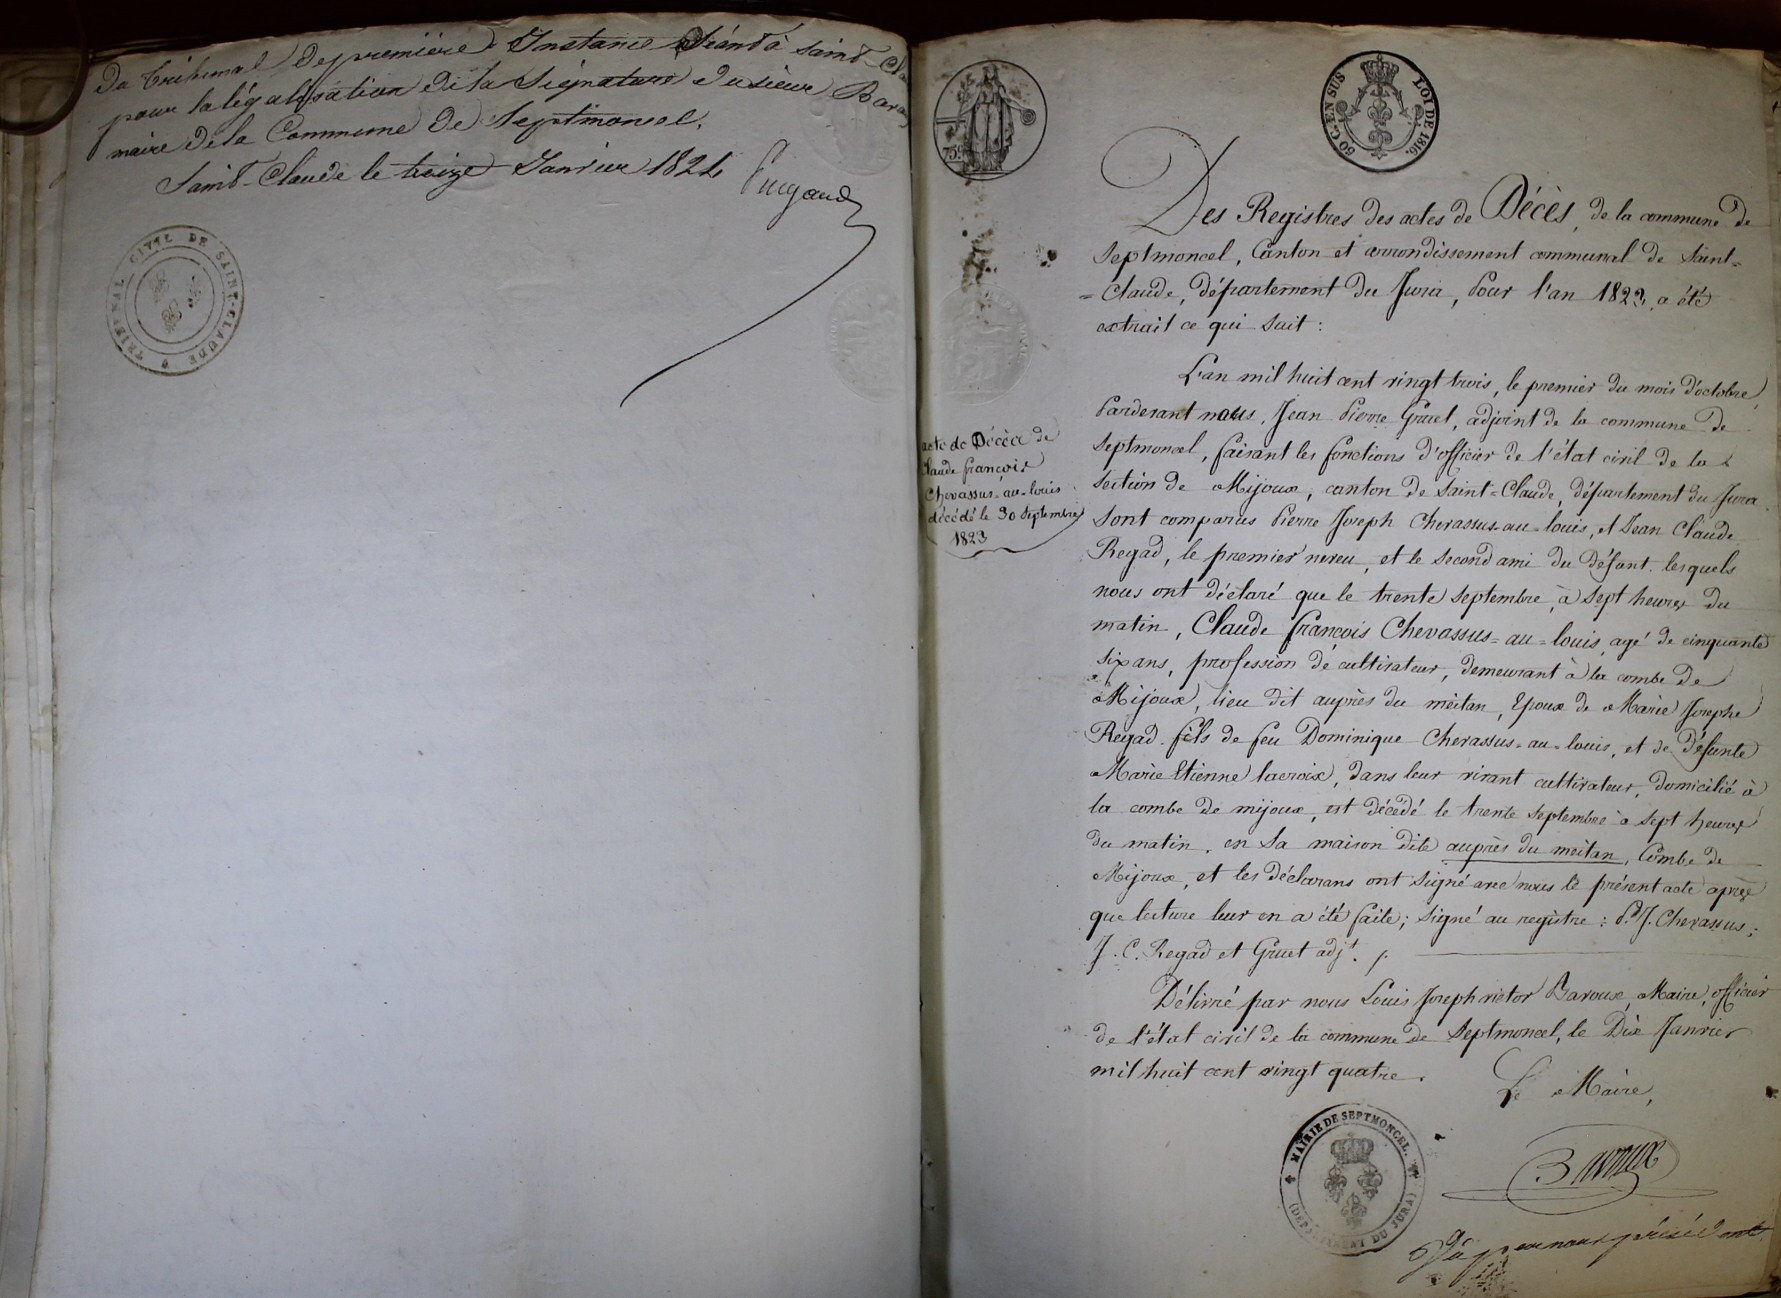 Du Tribunal de première Instance Séant à Saint-Cla
pour la légalisation de la Signature du sieur Barou
maire de la Commune de Septmoncel.
Saint-Claude le treize Janvier 1824
TRIBUNAL CIVIL DE SAINT-CLAUDE
75c
50 C. EN SUS
LOI DE 1816.
Des Registres des actes de Décès, de la commune de
Septmoncel, Canton et arrondissement communal de Saint-
=Claude, département du Jura, Pour l'an 1823, a été
extrait ce qui suit :
acte de Décès de
Claude françois
Chevassus-au-louis
décédé le 30 Septembre
1823
L'an mil huit cent vingt trois, le premier du mois d'octobre,
Pardevant nous, Jean Pierre Gruet, adjoint de la commune de
Septmoncel, faisant les fonctions d'officier de l'état civil de la
Section de Mijoux, canton de Saint=Claude, département du Jura
Sont comparus Pierre Joseph Chevassus-au-louis, et Jean Claude
Regad, le premier neveu, et le second ami du défunt lesquels
nous ont déclaré que le trente Septembre, à Sept heures du
matin, Claude françois Chevassus=au=louis, agé de cinquante
six ans, profession de cultivateur, demeurant à la combe de
Mijoux, lieu dit auprès du meitan, Epoux de Marie Josephe
Regad. fils de feu Dominique Chevassus-au-louis, et de défunte
Marie Etienne lacroix, dans leur vivant cultivateur, domicilié à
la combe de mijoux, est décédé le trente Septembre à Sept heures
du matin, en Sa maison dite auprès du meitan, Combe de
Mijoux, et les déclarans ont signé avec nous le présent acte après
que lecture leur en a été faite; Signé au registre : P. J. Chevassus;
J. C. Regad et Gruet adjt. /.
Délivré par nous Louis Joseph victor Baroux, Maire, officier
de l'état civil de la commune de Septmoncel, le Dix Janvier
mil huit cent vingt quatre.
Le Maire,
MAIRIE DE SEPTMONCEL.
(DÉPARTEMENT DU JURA)
Baroux
Vu par nous président